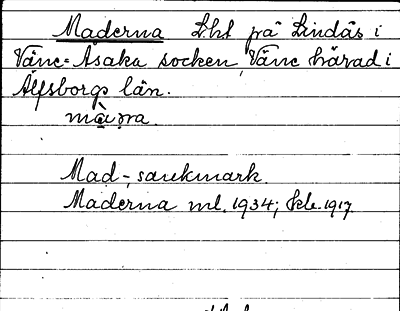 Maderna Lht på Lindås i
Väne-Åsaka socken, Väne härad i
Älfsborgs län.
Mad-, sankmark.
Maderna ml. 1934; Skb. 1917.